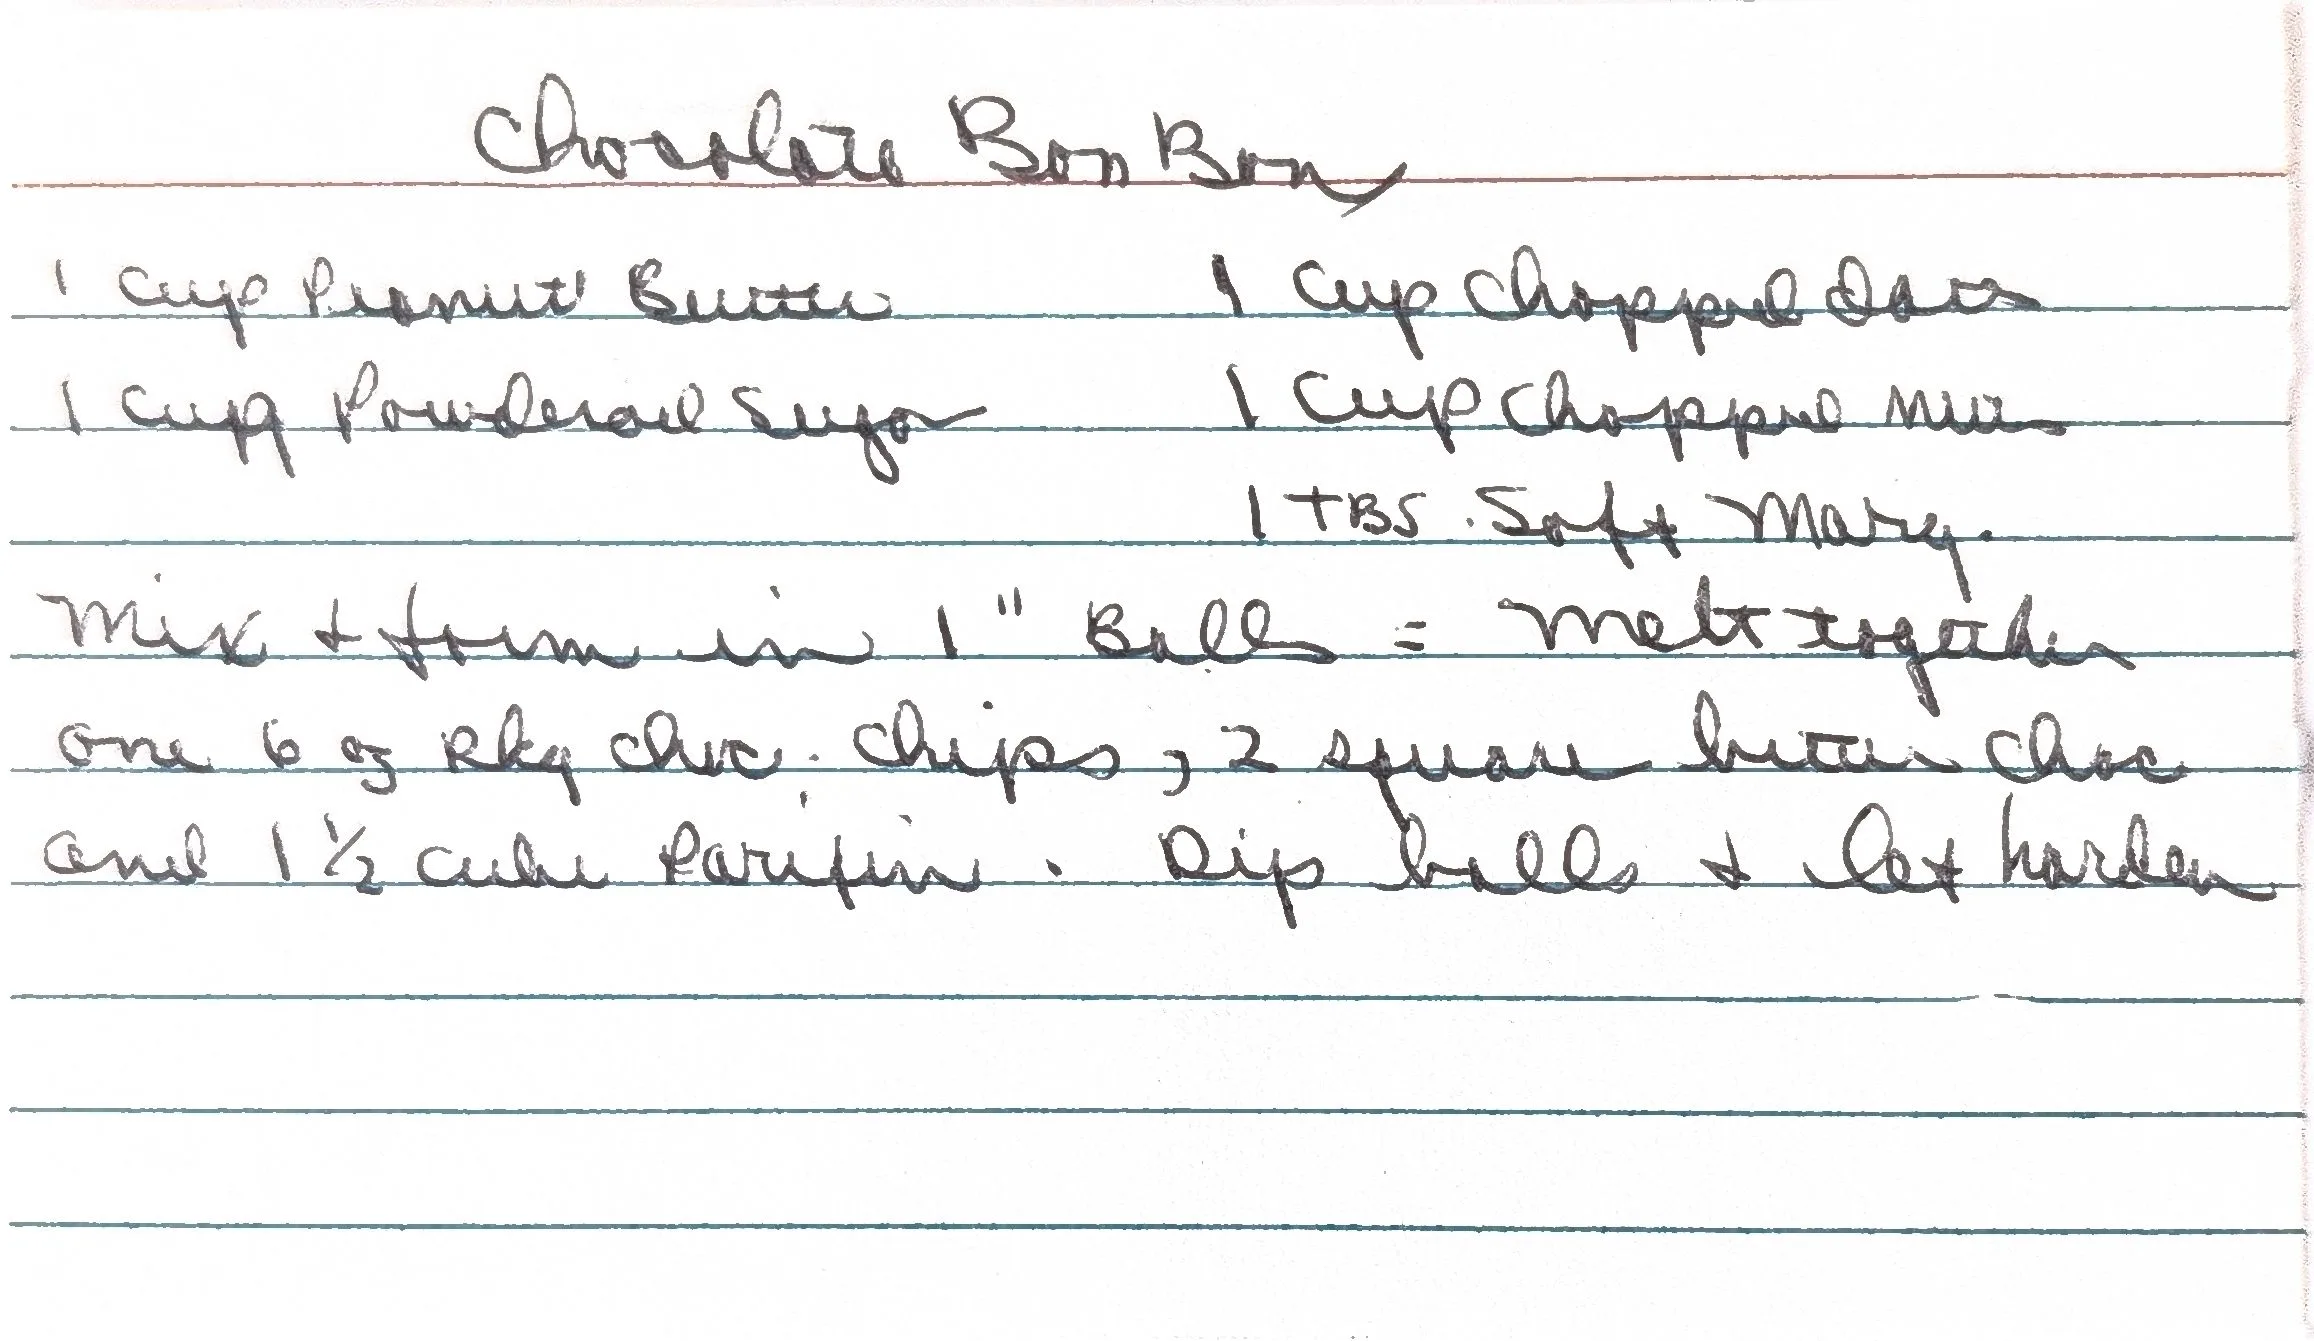 Chocolate Bon Bon
1 cup Peanut Butter 1 cup chopped dates
1 cup Powdered Sugar 1 cup chopped nuts
1 TBS. Soft Marg.
Mix & form in 1" Balls = Melt together
one 6 oz pkg choc. chips, 2 square bitter choc
and 1 1/2 cube Parifin. Dip balls & let harden